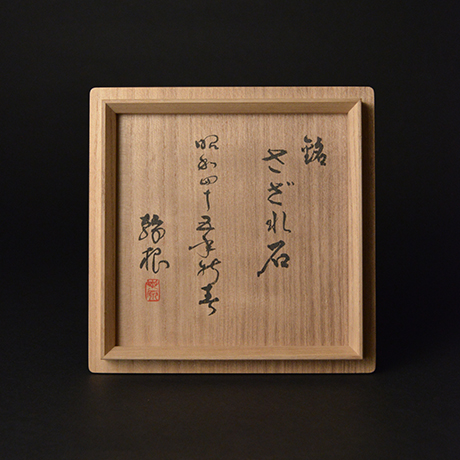 銘
さざれ石
昭和四十五年新春